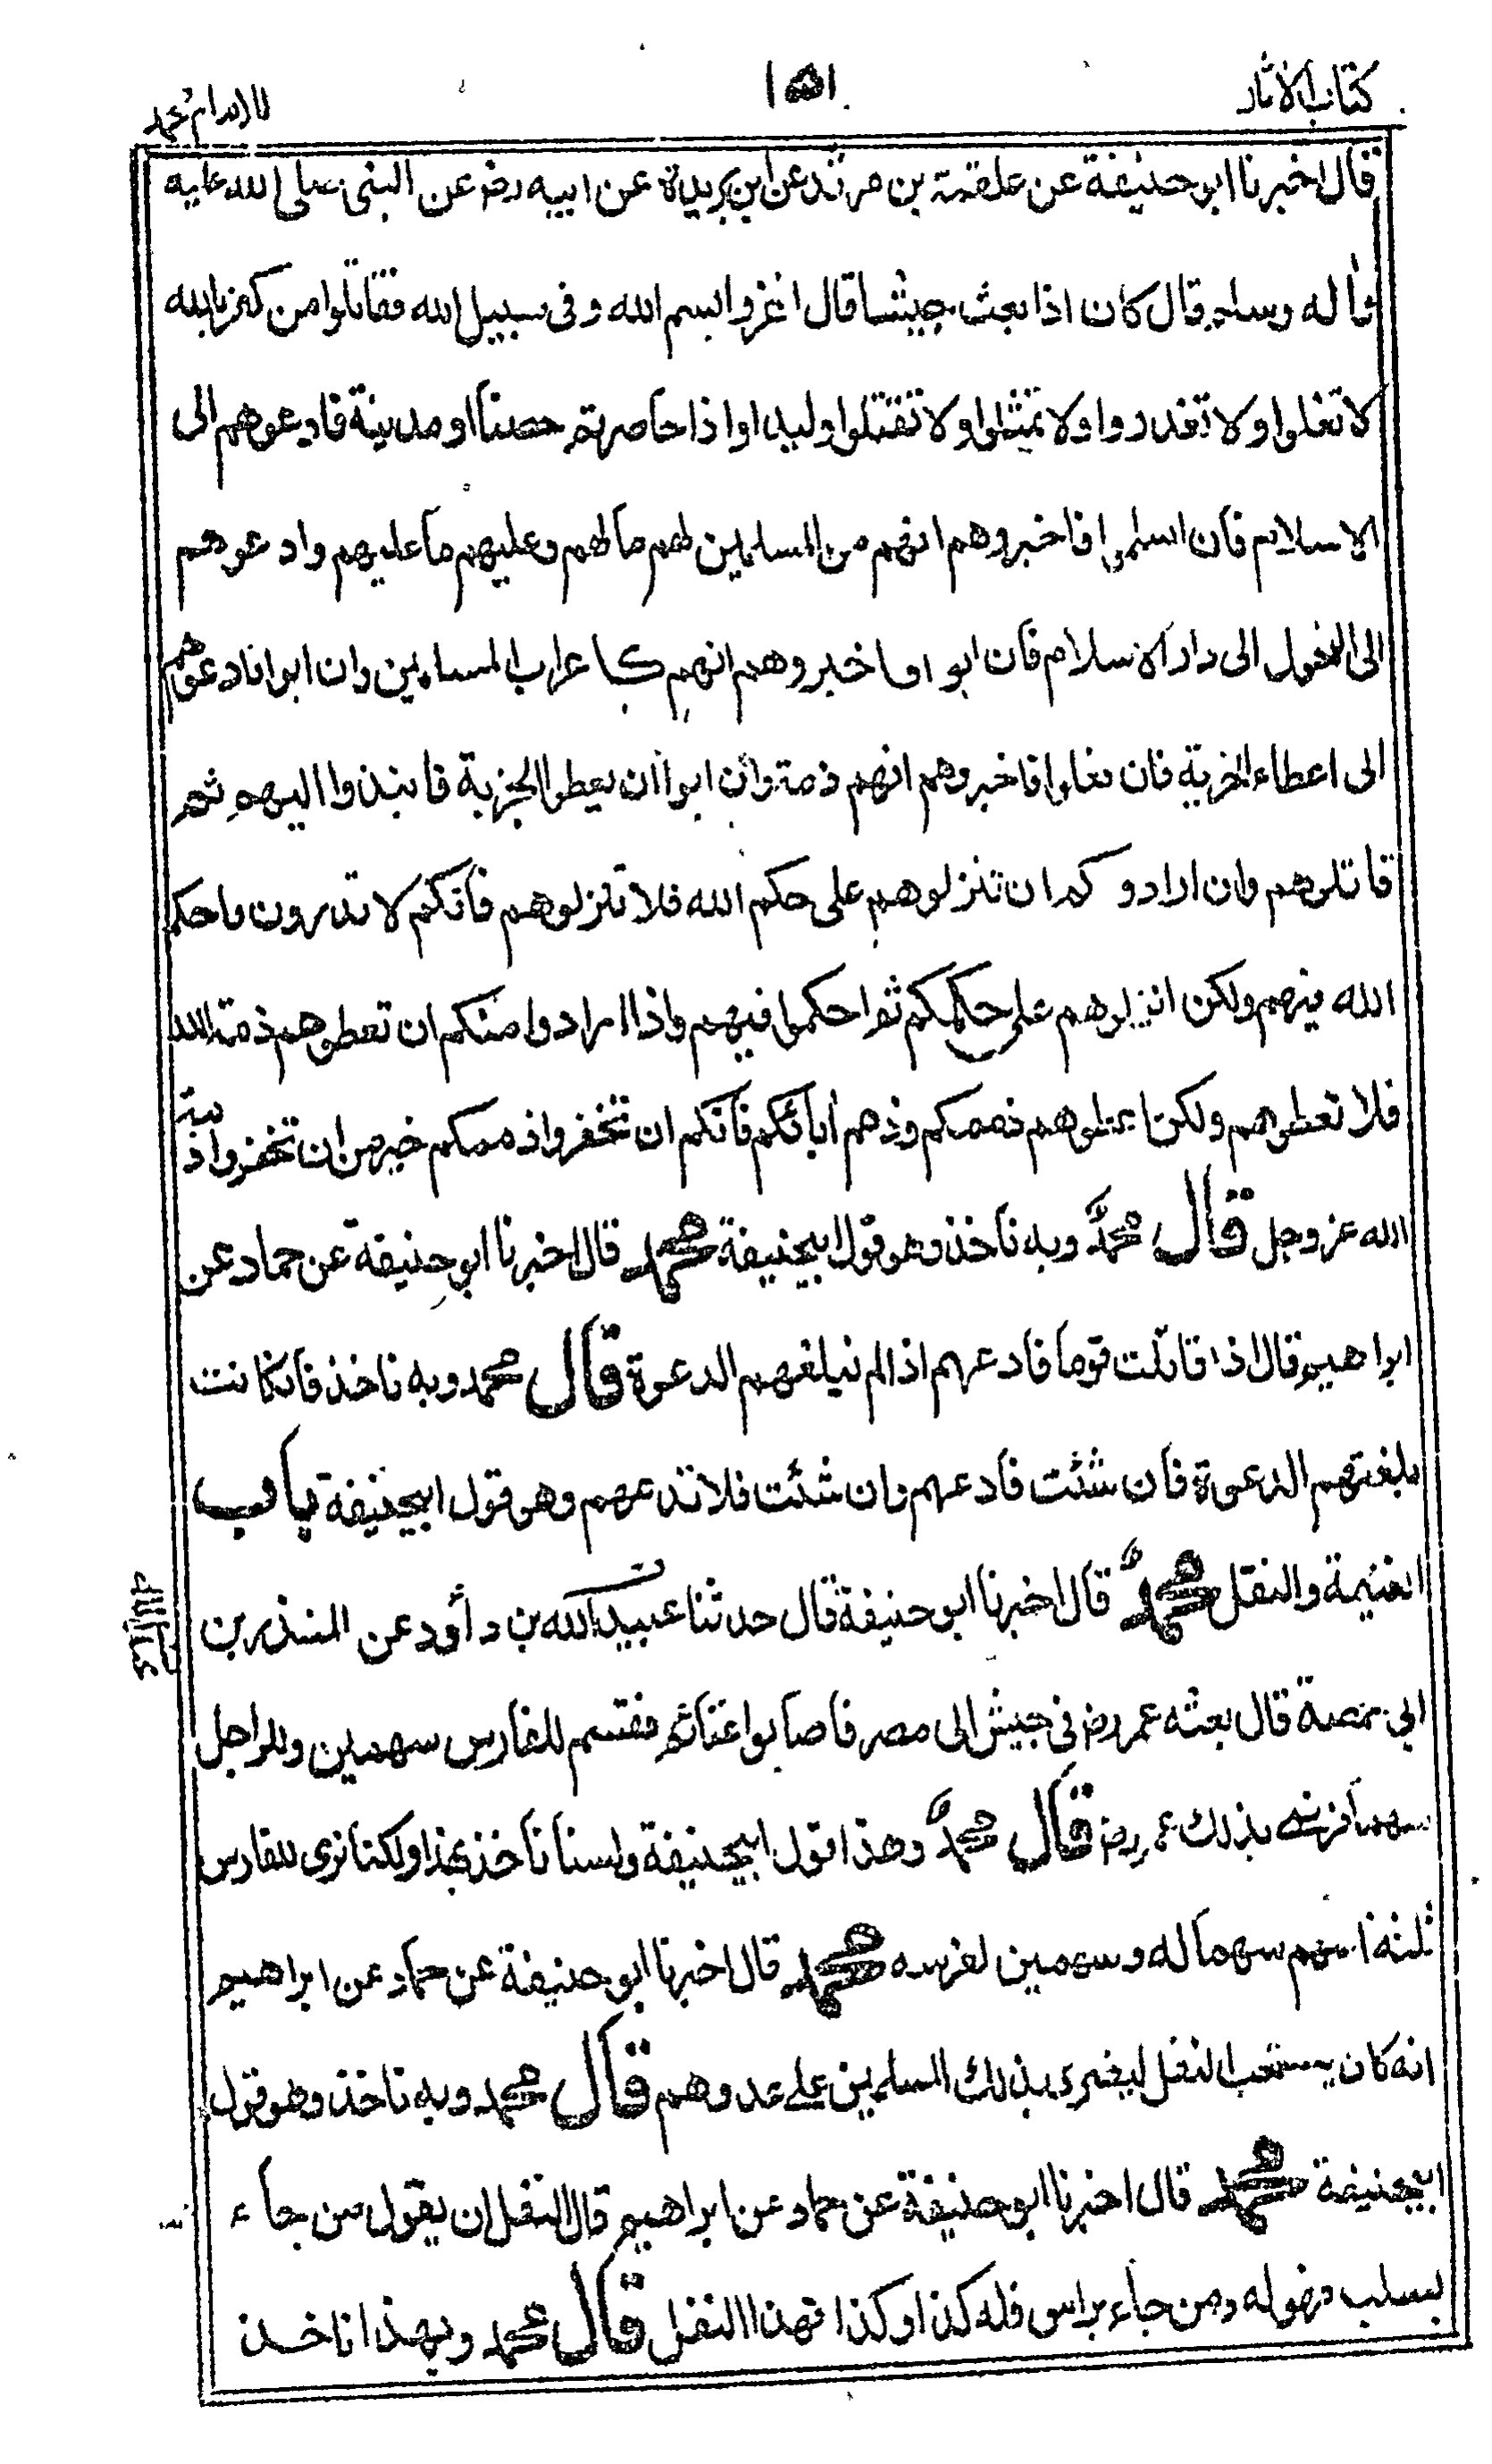 كتاب الاثار
١٥١
للامام محمد
قال اخبرنا ابو حنيفة عن علقمة بن مرثد عن ابن بريدة عن ابيه رضـ عن النبى صلى الله عليه
وأله وسلم قال كان اذا بعث جيشا قال اغزوا بسم الله وفى سبيل الله فقاتلوا من كفر بالله
لا تغلوا ولا تغدروا ولا تمثلوا ولا تقتلوا وليدا واذا حاصرتم حصنا او مدينة فادعوهم الى
الاسلام فان اسلموا فاخبروهم انهم من المسلمين لهم ما لهم وعليهم ما عليهم وادعوهم
الى التحول الى دار الاسلام فان ابوا فاخبروهم انهم كاعراب المسلمين وان ابوا فادعوهم
الى اعطاء الجزية فان فعلوا فاخبروهم انهم ذمة وان ابوا ان يعطوا الجزية فانبذوا اليهم ثم
قاتلوهم وان ارادوكم ان تنزلوهم على حكم الله فلا تنزلوهم فانكم لا تدرون ما حكم
الله فيهم ولكن انزلوهم على حكمكم ثم احكموا فيهم واذا ارادوا منكم ان تعطوهم ذمة الله
فلا تعطوهم ولكن اعطوهم ذممكم وذمم ابائكم فانكم ان تخفروا ذممكم خير من ان تخفروا ذمة
الله عز وجل قال محمد وبه ناخذ وهو قول ابيحنيفة محمد قال اخبرنا ابو حنيفة عن حماد عن
ابراهيم قال اذا قاتلت قوما فادعهم اذا لم تبلغهم الدعوة قال محمد وبه ناخذ فان كانت
بلغتهم الدعوة فان شئت فادعهم وان شئت فلا تدعهم وهو قول ابيحنيفة باب
الغنيمة والنفل محمد قال اخبرنا ابو حنيفة قال حدثنا عبيد الله بن داود عن المنذر بن
ابى حمصة قال بعثه عمر رضـ فى جيش الى مصر فاصابوا غنائم فقسم للفارس سهمين وللراجل
سهما فرضى بذلك عمر رضـ قال محمد وهذا قول ابيحنيفة ولسنا ناخذ بهذا ولكنا نرى للفارس
ثلثة اسهم سهما له وسهمين لفرسه محمد قال اخبرنا ابو حنيفة عن حماد عن ابراهيم
انه كان يستحب النفل ليغرى بذلك المسلمين على عدوهم قال محمد وبه ناخذ وهو قول
ابيحنيفة محمد قال اخبرنا ابو حنيفة عن حماد عن ابراهيم قال النفل ان يقول من جاء
بسلب فهو له ومن جاء براس فله كذا وكذا فهذا النفل قال محمد وبهذا ناخذ